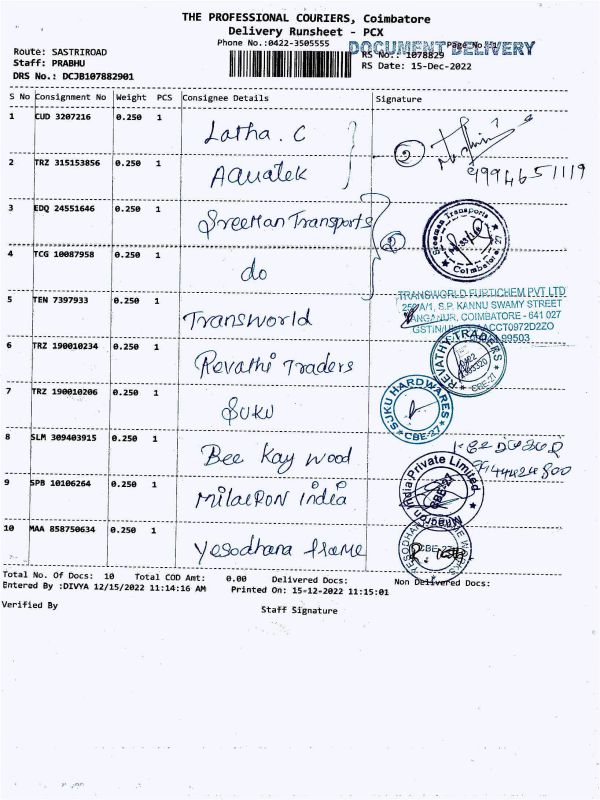 THE PROFESSIONAL COURIERS, Coimbatore
Delivery Runsheet - PCX
Phone No.:0422-3505555
DOCUMENT DELIVERY
Page No. :1
Route: SASTRIROAD
RS No.: 1078829
Staff: PRABHU
RS Date: 15-Dec-2022
DRS No.: DCJB107882901
S No Consignment No Weight PCS Consignee Details Signature
1 CUD 3207216 0.250 1 Latha. C
2 TRZ 315153856 0.250 1 Aquatek
9994651119
3 EDQ 24551646 0.250 1 Sreeman Transports
Sreeman Transports
Coimbatore 27
4 TCG 10087958 0.250 1 do
5 TEN 7397933 0.250 1 Transworld
TRANSWORLD FURTICHEM PVT LTD
252A/1, S.P. KANNU SWAMY STREET
COIMBATORE - 641 027
6 TRZ 190010234 0.250 1 Revathi Traders
REVATHY TRADERS
CBE-27
7 TRZ 190010206 0.250 1 Suku
SUKU HARDWARES
CBE-27
8 SLM 309403915 0.250 1 Bee Kay wood
9 SPB 10106264 0.250 1 Milacron india
Milacron India Private Limited
CBE-27
10 MAA 858750634 0.250 1 Yesodhana frame
Total No. Of Docs: 10 Total COD Amt: 0.00 Delivered Docs: Non Delivered Docs:
Entered By :DIVYA 12/15/2022 11:14:16 AM Printed On: 15-12-2022 11:15:01
Verified By
Staff Signature